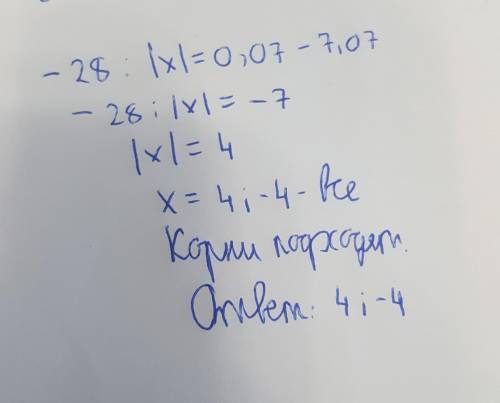 -28 : |x| = 0,07 - 7,07
-28 : |x| = -7
|x| = 4
x = 4; -4 - все
Корни подходят.
Ответ: 4; -4